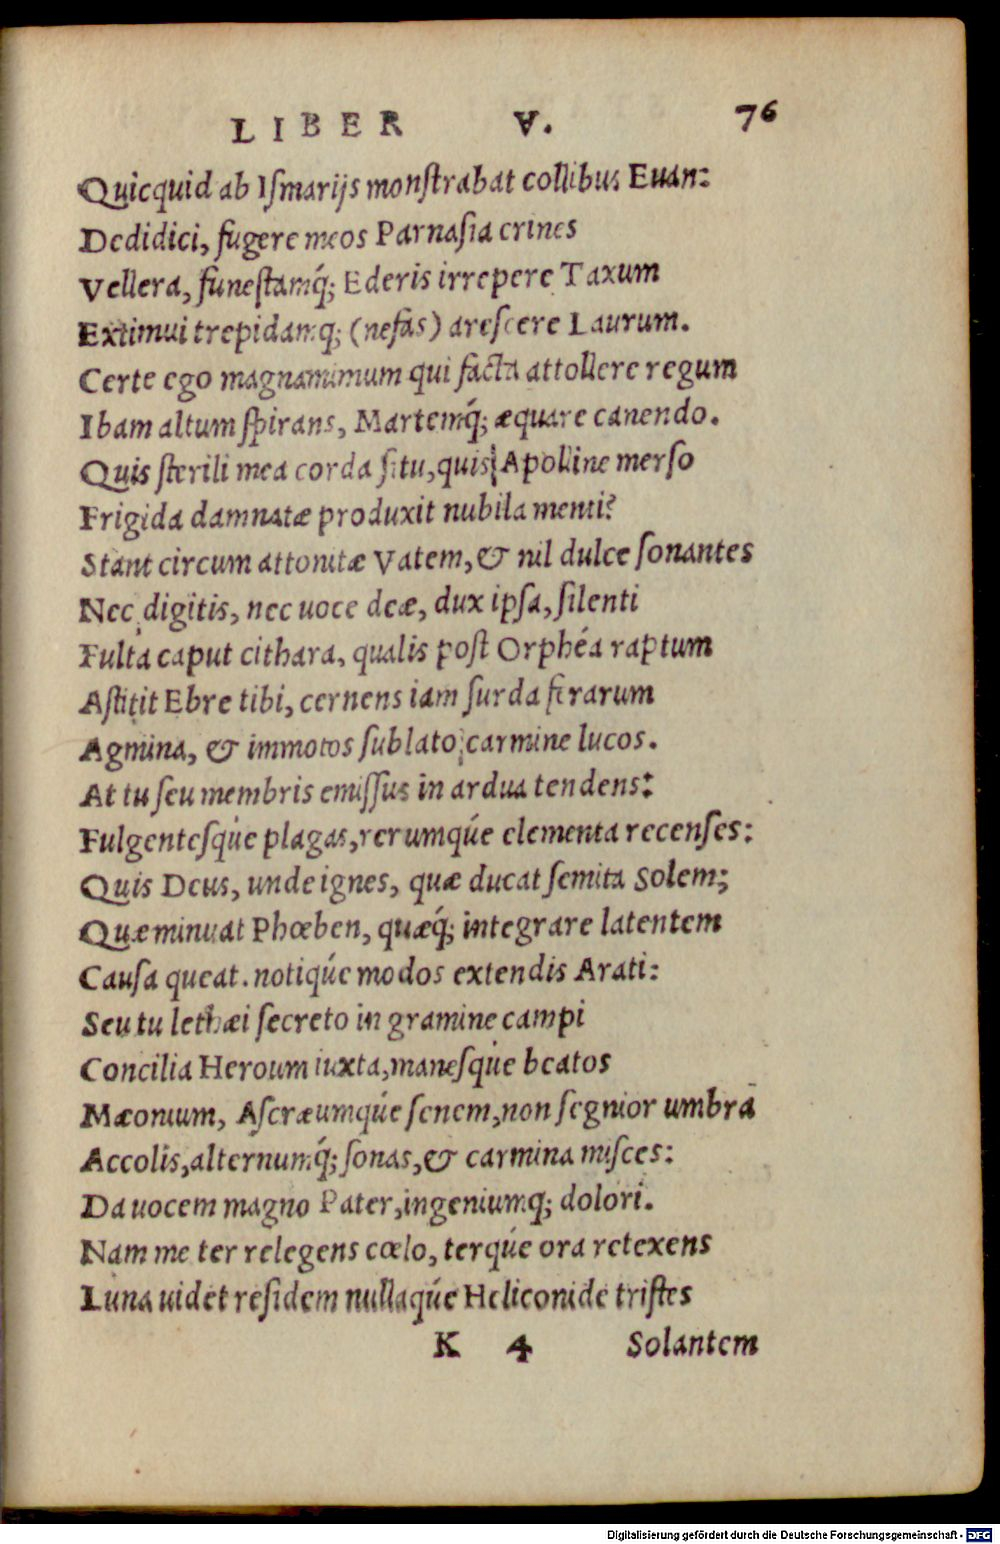 LIBER V. 76
Quicquid ab Iſmarijs monſtrabat collibus Euan:
Dedidici, fugere meos Parnaſia crines
Vellera, funeſtamq́; Ederis irrepere Taxum
Extimui trepidamq; (nefas) areſcere Laurum.
Certe ego magnanimum qui facta attollere regum
Ibam altum ſpirans, Martemq́; æquare canendo.
Quis ſterili mea corda ſitu, quis Apolline merſo
Frigida damnatæ produxit nubila menti?
Stant circum attonitæ Vatem, & nil dulce ſonantes
Nec digitis, nec uoce deæ, dux ipſa, ſilenti
Fulta caput cithara, qualis poſt Orphéa raptum
Aſtitit Ebre tibi, cernens iam ſurda ferarum
Agmina, & immotos ſublato carmine lucos.
At tu ſeu membris emiſſus in ardua tendens:
Fulgenteſqúe plagas, rerumqúe elementa recenſes:
Quis Deus, unde ignes, quæ ducat ſemita Solem;
Quæ minuat Phœben, quæq́; integrare latentem
Cauſa queat. notiqúe modos extendis Arati:
Seu tu lethæi ſecreto in gramine campi
Concilia Heroum iuxta, maneſqúe beatos
Mæonium, Aſcræumqúe ſenem, non ſegnior umbrā
Accolis, alternumq́; ſonas, & carmina miſces:
Da uocem magno Pater, ingeniumq; dolori.
Nam me ter relegens cœlo, terqúe ora retexens
Luna uidet reſidem nullaqúe Heliconide triſtes
K 4 Solantem
Digitalisierung gefördert durch die Deutsche Forschungsgemeinschaft - DFG